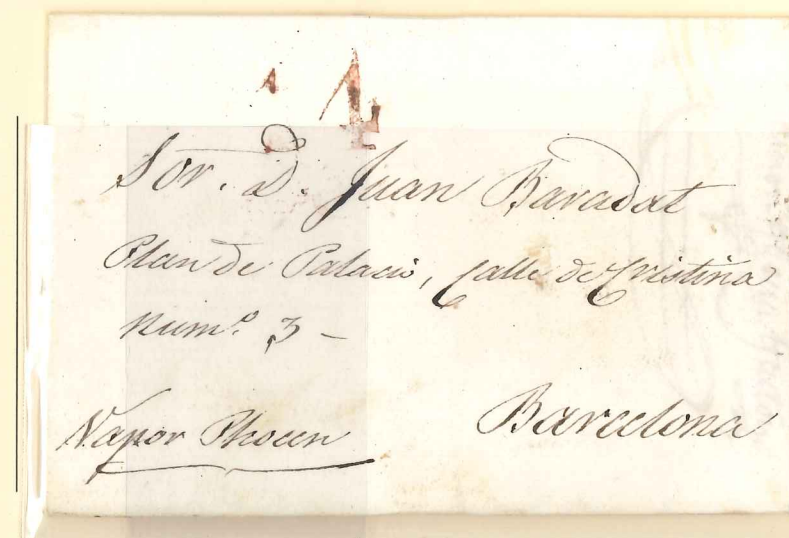 4
Sor. D. Juan Baradat
Plan de Palacio, Calle de Cristina
Num.º 3 –
Vapor
Barcelona